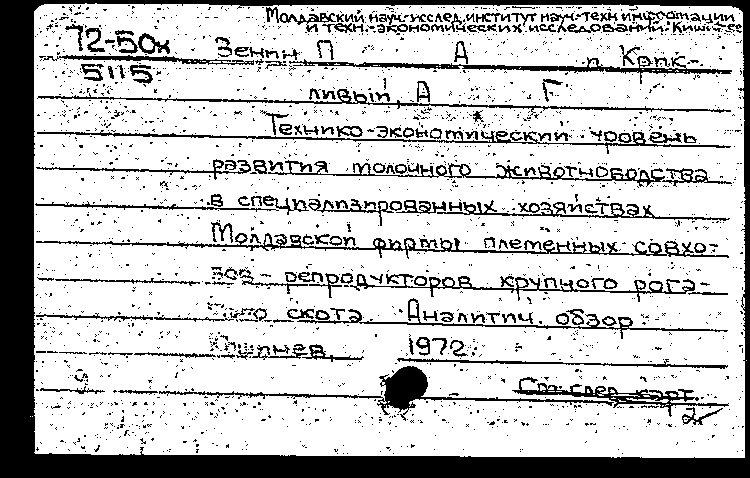 Молдавский науч.-исслед. институт науч.-техн. информации
и техн.-экономических исследований. Кишинев
72-50к Зенин, П А и Крик-
5115
ливый, А Г
Технико-экономический уровень
развития молочного животноводства
в специализированных хозяйствах
Молдавской фирмы племенных совхо-
зов - репродукторов крупного рога-
того скота. Аналитич. обзор.
Кишинев, 1972.
9 См. след. карт.
2